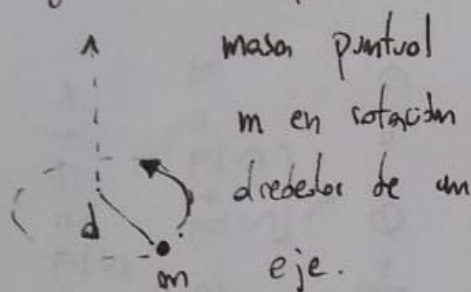 masa puntual
m en rotación
alrededor de un
eje.
d
m